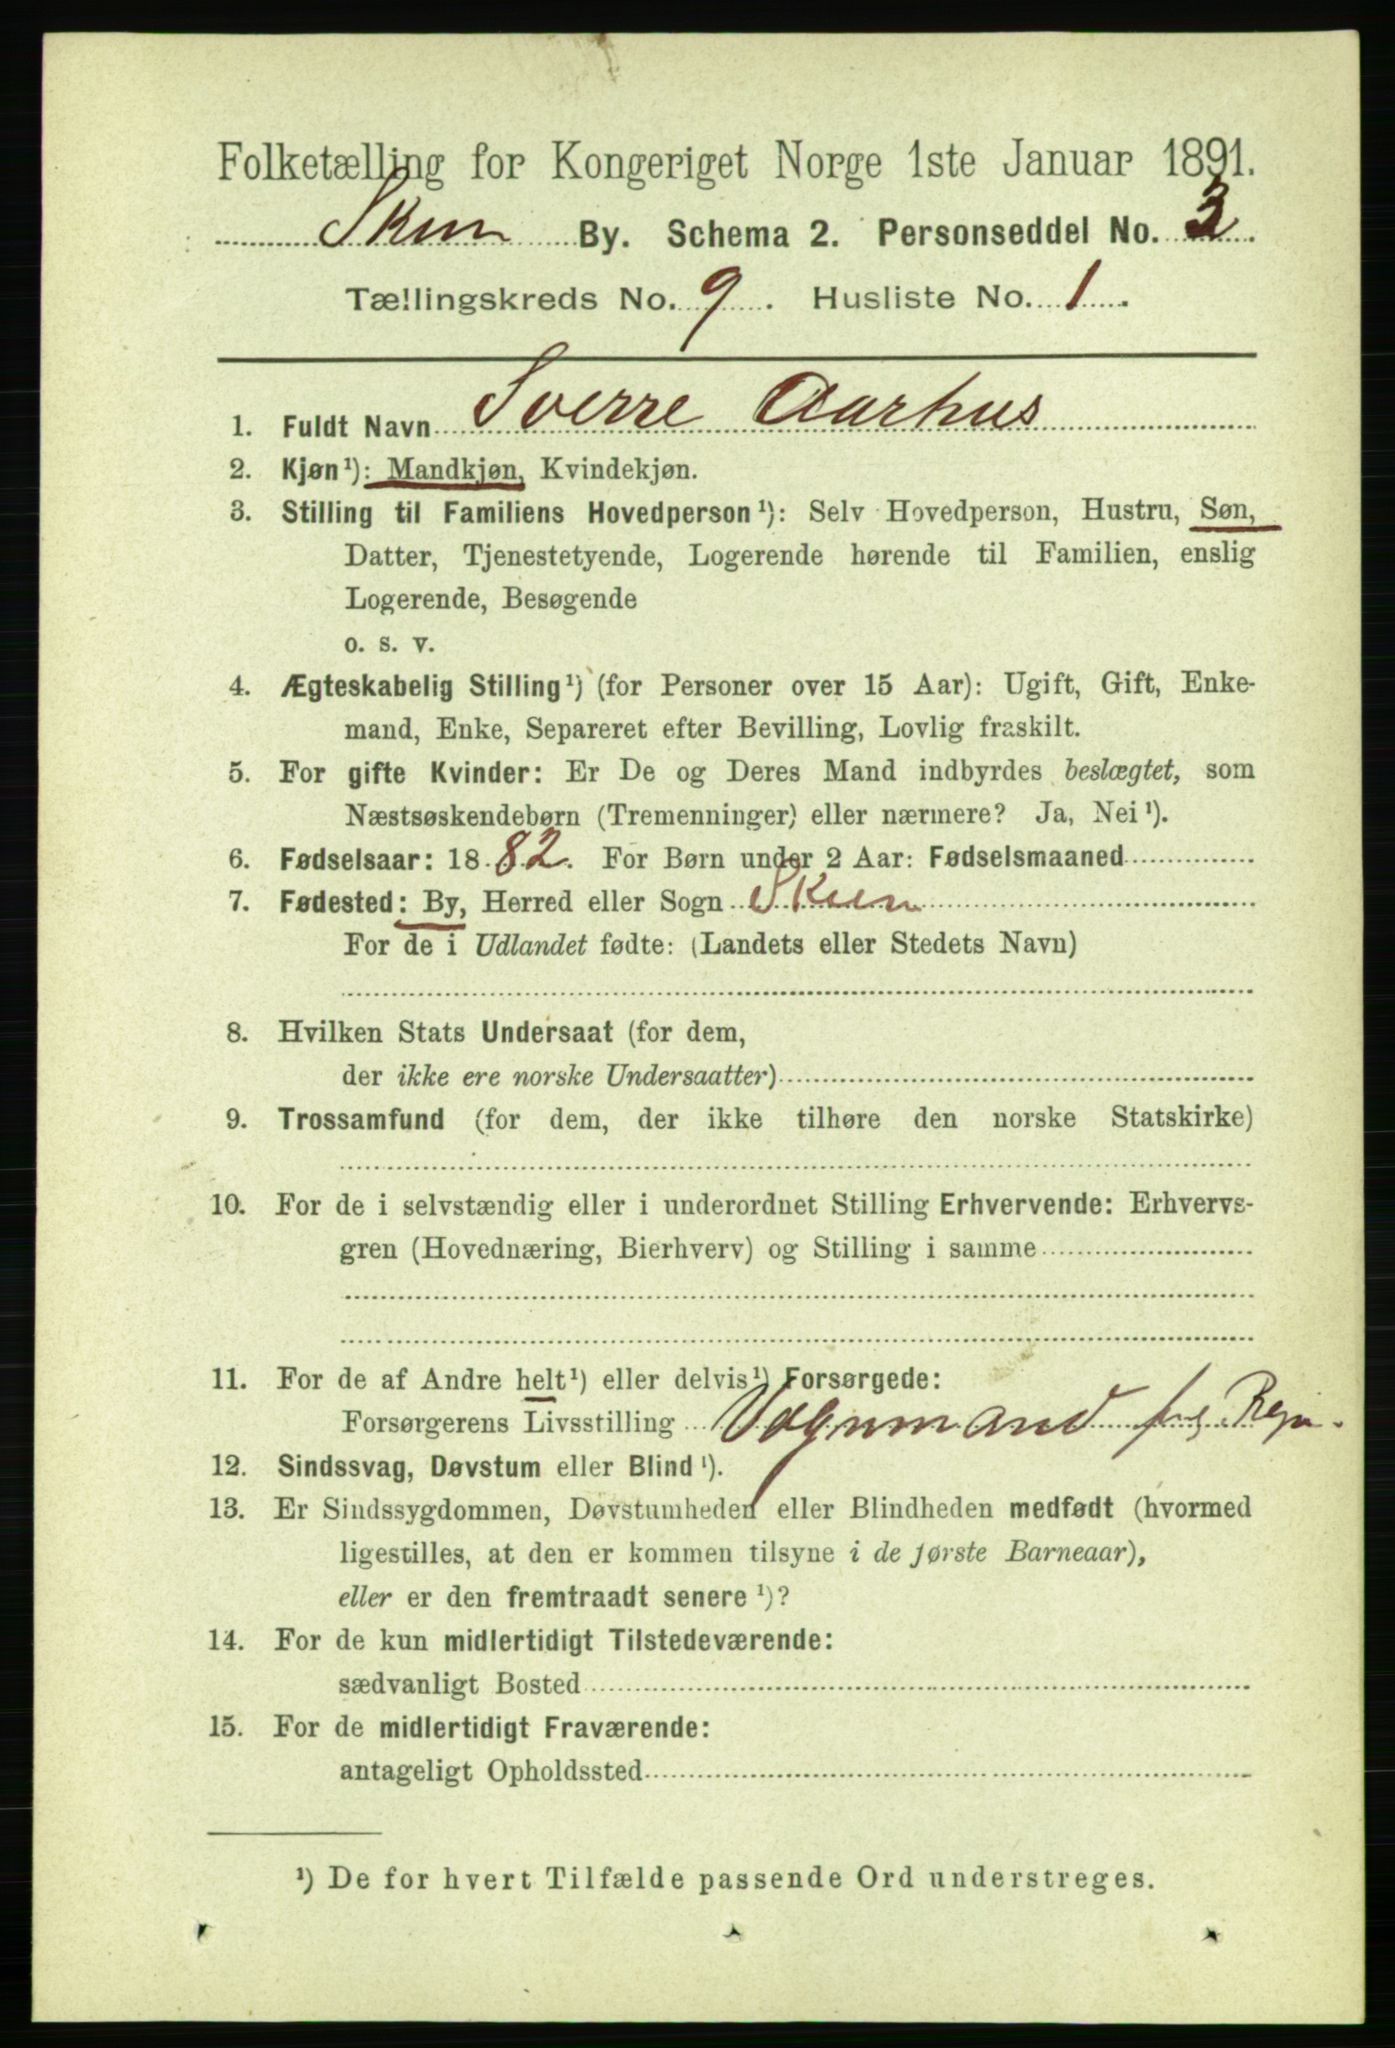 Folketælling for Kongeriget Norge 1ste Januar 1891.
Skien By. Schema 2. Personseddel No. 3.
Tællingskreds No. 9. Husliste No. 1.
1. Fuldt Navn Sverre Aarhus
2. Kjøn¹): Mandkjøn, Kvindekjøn.
3. Stilling til Familiens Hovedperson¹): Selv Hovedperson, Hustru, Søn,
Datter, Tjenestetyende, Logerende hørende til Familien, enslig
Logerende, Besøgende
o. s. v.
4. Ægteskabelig Stilling¹) (for Personer over 15 Aar): Ugift, Gift, Enke-
mand, Enke, Separeret efter Bevilling, Lovlig fraskilt.
5. For gifte Kvinder: Er De og Deres Mand indbyrdes beslægtet, som
Næstsøskendebørn (Tremenninger) eller nærmere? Ja, Nei¹).
6. Fødselsaar: 1882. For Børn under 2 Aar: Fødselsmaaned
7. Fødested: By, Herred eller Sogn Skien
For de i Udlandet fødte: (Landets eller Stedets Navn)
8. Hvilken Stats Undersaat (for dem,
der ikke ere norske Undersaatter)
9. Trossamfund (for dem, der ikke tilhøre den norske Statskirke)
10. For de i selvstændig eller i underordnet Stilling Erhvervende: Erhvervs-
gren (Hovednæring, Bierhverv) og Stilling i samme
11. For de af Andre helt¹) eller delvis¹) Forsørgede:
Forsørgerens Livsstilling Vognmand for Regn.
12. Sindssvag, Døvstum eller Blind¹).
13. Er Sindssygdommen, Døvstumheden eller Blindheden medfødt (hvormed
ligestilles, at den er kommen tilsyne i de første Barneaar),
eller er den fremtraadt senere¹)?
14. For de kun midlertidigt Tilstedeværende:
sædvanligt Bosted
15. For de midlertidigt Fraværende:
antageligt Opholdssted
¹) De for hvert Tilfælde passende Ord understreges.